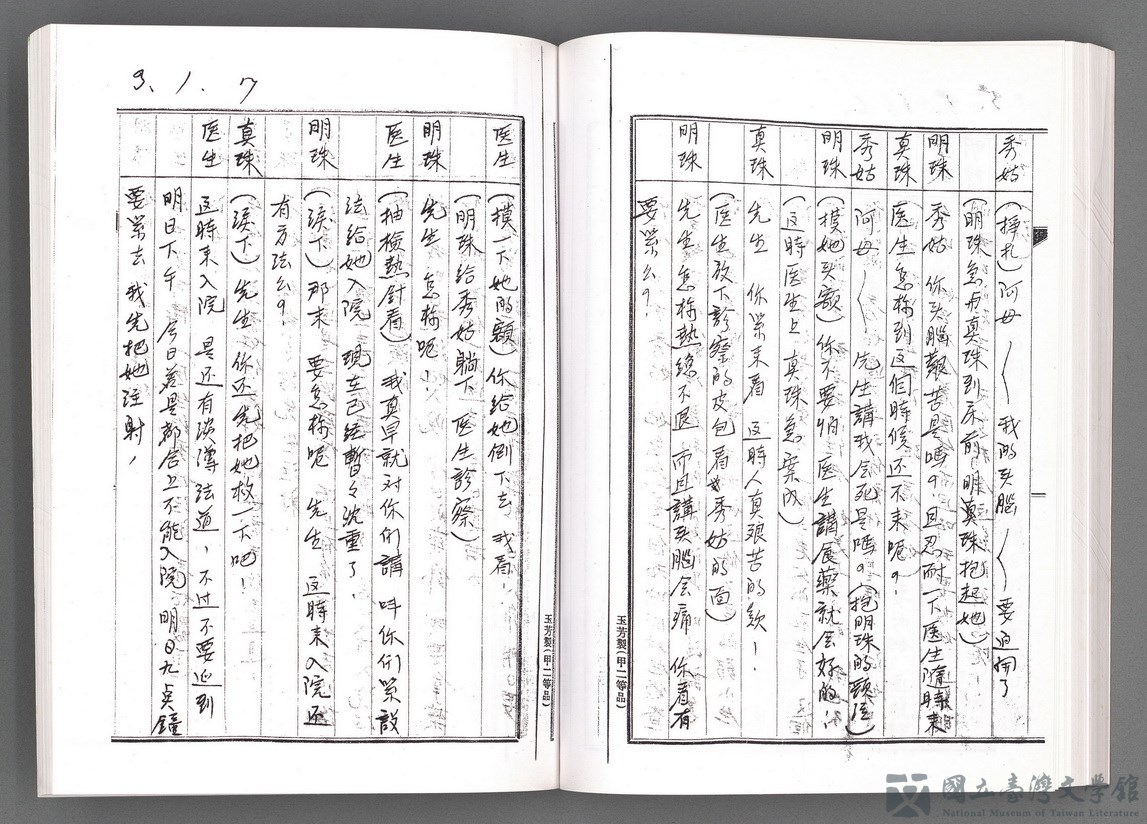 秀姑 (掙扎)阿母 我的头腦 要迫開了
(明珠急与真珠到床前 明真珠抱起她)
明珠 秀姑 你头腦艱苦是嗎?且忍耐一下医生隨時來
真珠 医生怎樣到这個時候还不来呢?
秀姑 阿母 先生講我会死是嗎?(抱明珠的頸)
明珠 (摸她头額)你不要怕 医生講食藥就会好的
(这時医生上 真珠急案内)
真珠 先生 你緊来看 这時人真艱苦的款!
(医生放下診察的皮包看秀姑的面)
明珠 先生怎樣熱總不退 而且講头腦会痛 你看有
要緊么?
玉芳製(甲二等品)
3、1、7
医生 (摸一下她的額)你給她倒下去 我看!
(明珠給秀姑躺下 医生診察)
明珠 先生 怎樣呢!
医生 (抽檢熱針看) 我真早就对你们講 叫你们緊設
法給她入院 現在已経暫々沈重了!
明珠 (淚下)那末 要怎樣呢 先生 这時来入院还
有方法么?
真珠 (淚下)先生 你还先把她救一下吧!
医生 这時来入院 是还有淡薄法道,不过不要延到
明日下午 今日若是都合上不能入院 明日九点鐘
要緊去 我先把她注射,
玉芳製(甲二等品)
國立臺灣文學館
National Museum of Taiwan Literature